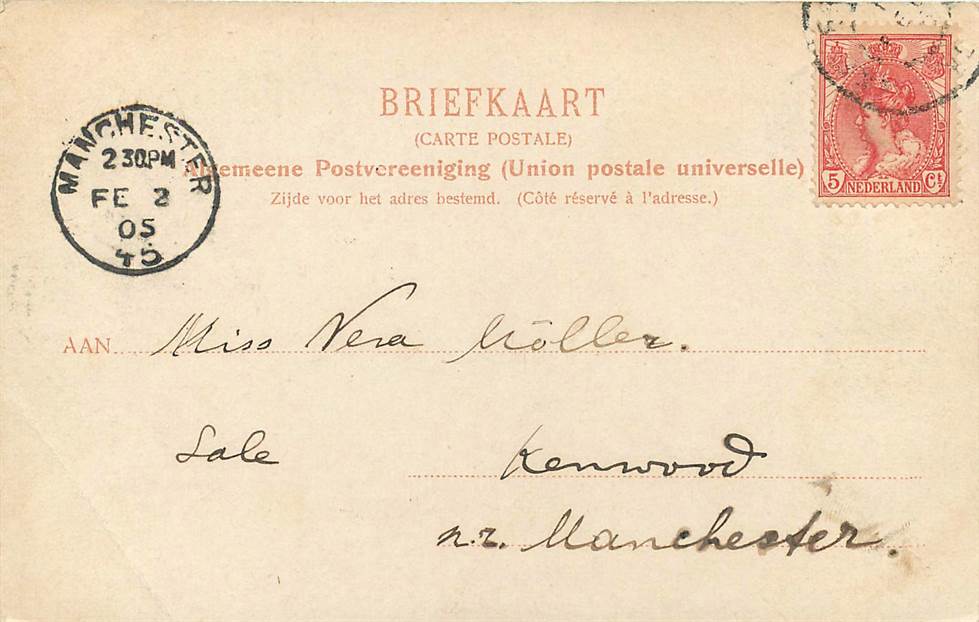 BRIEFKAART
(CARTE POSTALE)
Algemeene Postvereeniging (Union postale universelle)
Zijde voor het adres bestemd. (Côté réservé à l'adresse.)
MANCHESTER
2 30.PM
FE 2
05
45
5 NEDERLAND Ct
AAN Miss Vera Möller.
Sale Kenwood
n.r. Manchester.